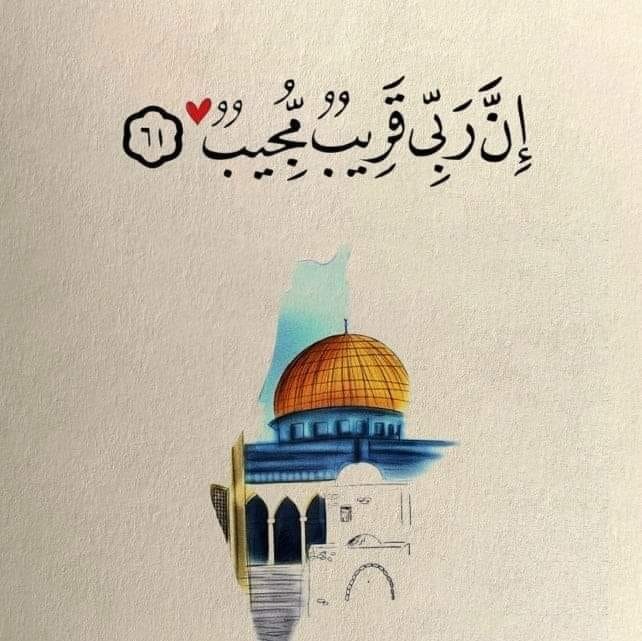 إِنَّ رَبِّي قَرِيبٌ مُّجِيبٌ ٦١